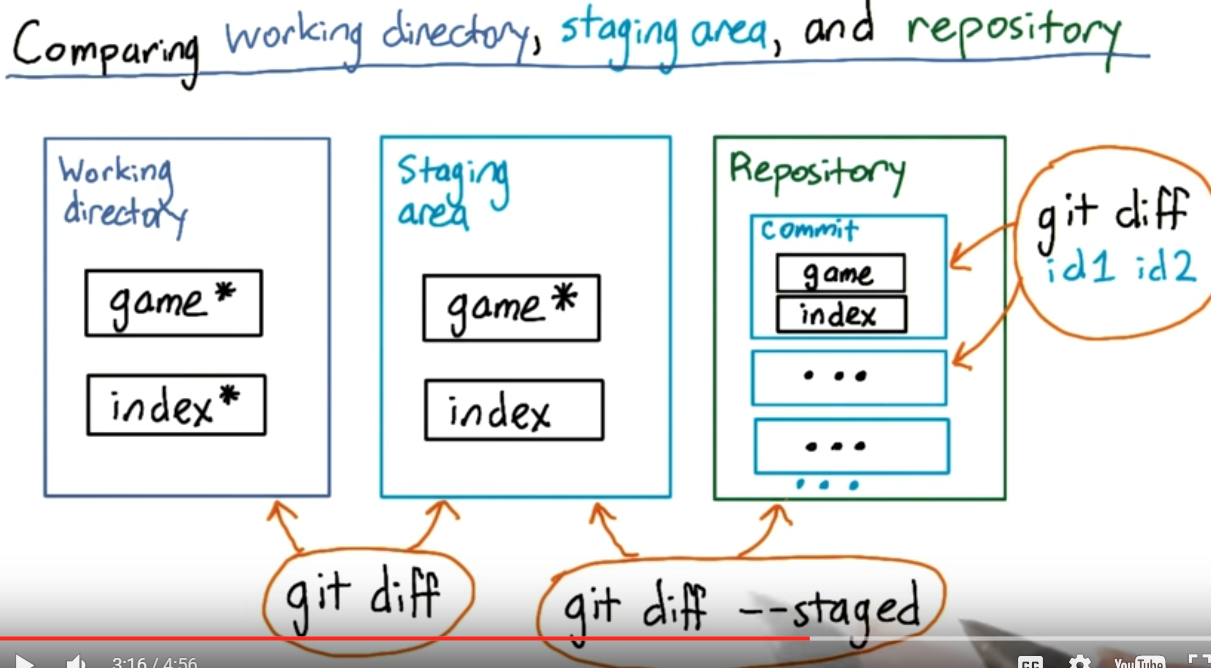 Comparing working directory, staging area, and repository
Working
directory
game*
index*
Staging
area
game*
index
Repository
commit
game
index
• • •
• • •
• • •
git diff
id1 id2
git diff
git diff --staged
3:16 / 4:56
CC
YouTube